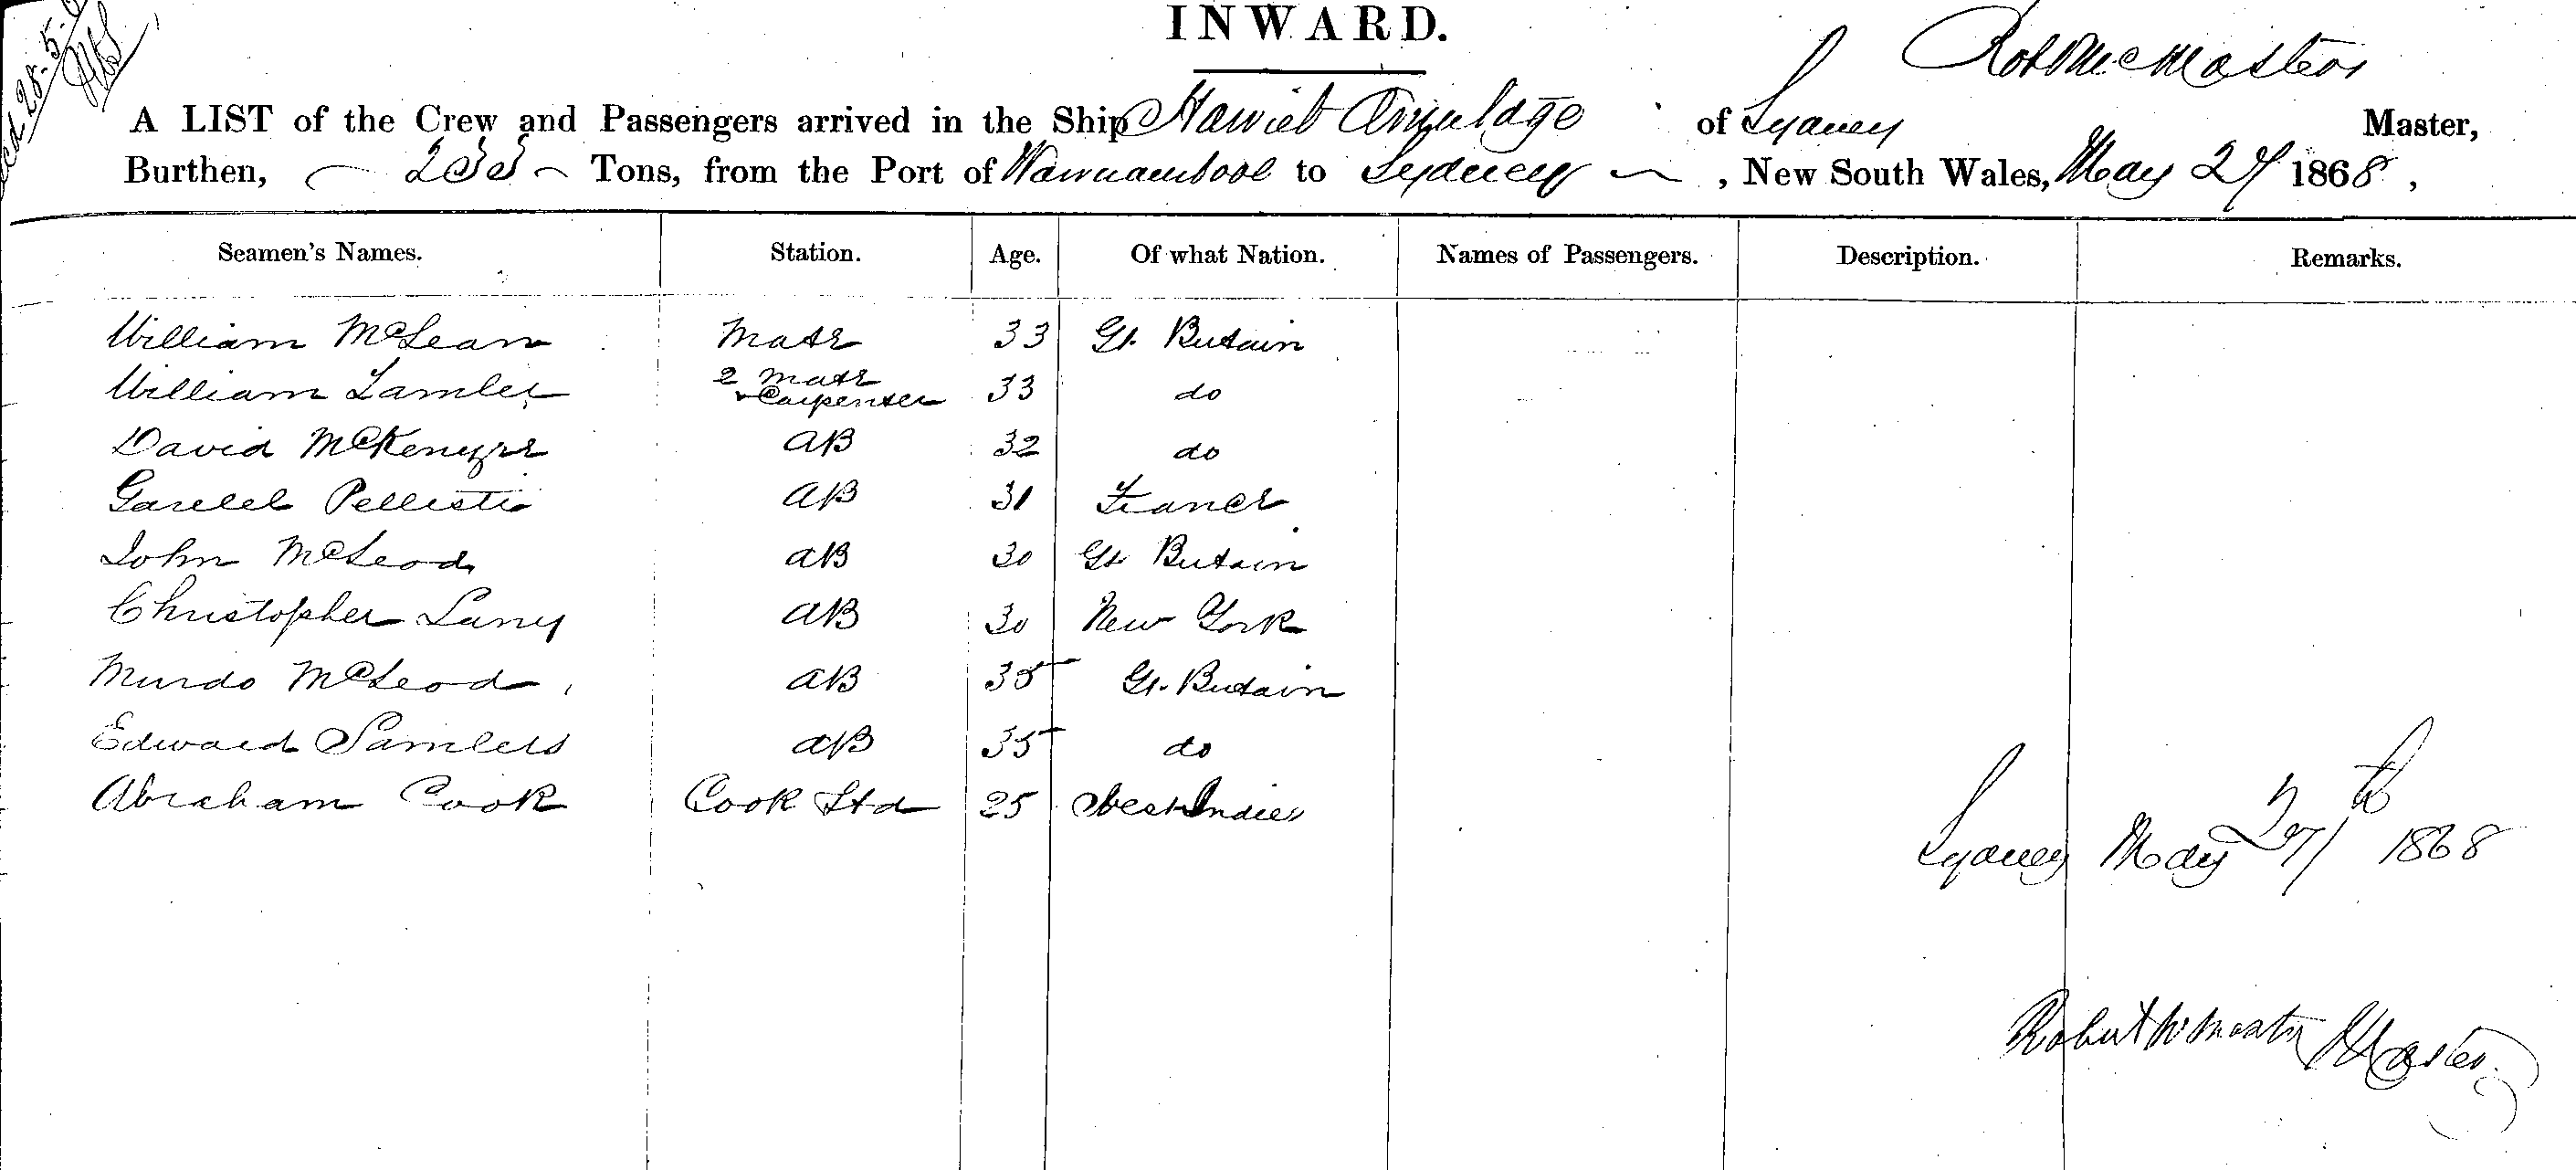 INWARD.
A LIST of the Crew and Passengers arrived in the Ship Harriet Armitage of Sydney Robt McMasters Master,
Burthen, 233 Tons, from the Port of Warrnambool to Sydney, New South Wales, May 27 1868,
Seamen's Names. Station. Age. Of what Nation. Names of Passengers. Description. Remarks.
William McLean Mate 33 Gt. Britain
William Lamler 2 Mate & Carpenter 33 do
David McKenyze AB 32 do
Pellistr AB 31 France
John McLeod AB 30 Gt Britain
Christopher AB 30 New York
Murdo McLeod AB 35 Gt. Britain
Edward AB 35 do
Abraham Cook Cook Std 25 West Indies
Sydney May 27th 1868
Robert McMaster Master